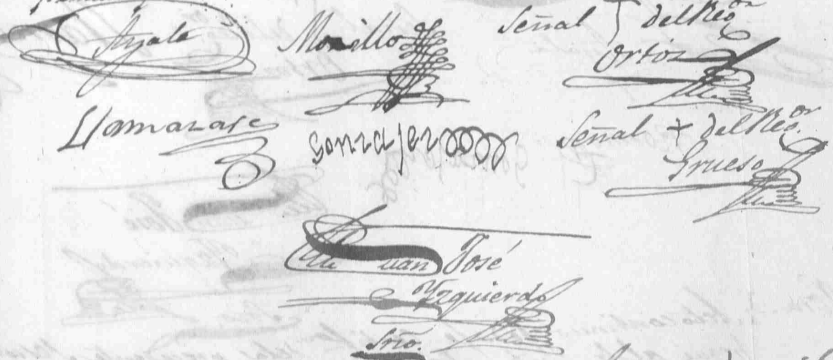 Ayala Morillo Señal + del Reor
Ortiz
Llamazare Gonzalez Señal + del Reor.
Grueso
Juan José
Yzquierdo
Srio.